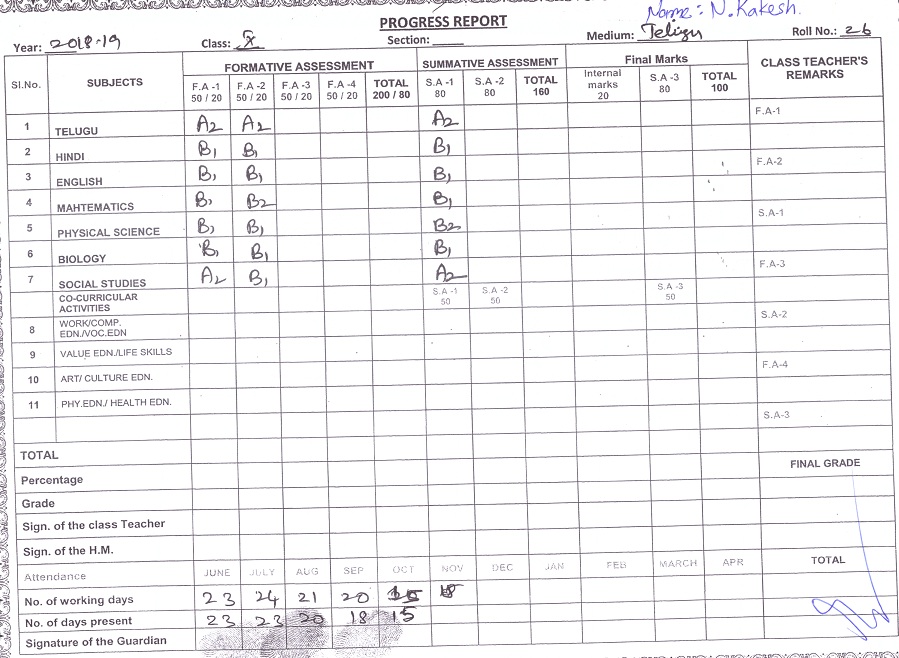 PROGRESS REPORT
Name: N.Kakesh.
Year: 2018-19 Class: X Section: Medium: Teligu Roll No.: 26
Sl.No. SUBJECTS FORMATIVE ASSESSMENT SUMMATIVE ASSESSMENT Final Marks CLASS TEACHER'S REMARKS
F.A -1 50 / 20 F.A -2 50 / 20 F.A -3 50 / 20 F.A -4 50 / 20 TOTAL 200 / 80 S.A -1 80 S.A -2 80 TOTAL 160 Internal marks 20 S.A -3 80 TOTAL 100
1 TELUGU A2 A2 A2 F.A-1
2 HINDI B1 B1 B1
3 ENGLISH B1 B1 B1 F.A-2
4 MAHTEMATICS B1 B2 B1
5 PHYSICAL SCIENCE B1 B1 B2 S.A-1
6 BIOLOGY B1 B1 B1
7 SOCIAL STUDIES A2 B1 A2 F.A-3
CO-CURRICULAR ACTIVITIES S.A -1 50 S.A -2 50 S.A -3 50
8 WORK/COMP. EDN./VOC.EDN S.A-2
9 VALUE EDN./LIFE SKILLS
10 ART/ CULTURE EDN. F.A-4
11 PHY.EDN./ HEALTH EDN.
S.A-3
TOTAL
Percentage FINAL GRADE
Grade
Sign. of the class Teacher
Sign. of the H.M.
Attendance JUNE JULY AUG SEP OCT NOV DEC JAN FEB MARCH APR TOTAL
No. of working days 23 24 21 20 18
No. of days present 23 23 20 18 15
Signature of the Guardian